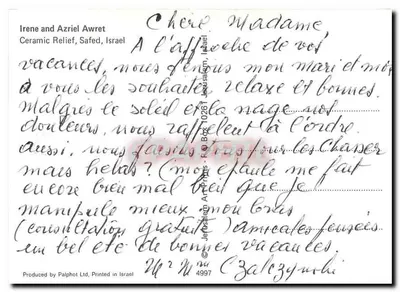 Irene and Azriel Awret
Ceramic Relief, Safed, Israel
Chère Madame
A l'approche de vos
vacances, nous tenons mon mari et moi
a vous les souhaiter relaxe et bonnes.
malgrès le soleil et la nage nos
douleurs, nous rappellent à l'ordre.
aussi, nous faisons tous pour les chasser
mais helas? (mon épaule me fait
encore bien mal bien que je
manipule mieux mon bras
(consultation gratuite) amicales pensées
un bel été de bonnes vacances.
Mr Mme Czalczynski
Produced by Palphot Ltd, Printed in Israel
4997
Jerusalem Art Prints - P.O Box 10281 Jerusalem, Israel